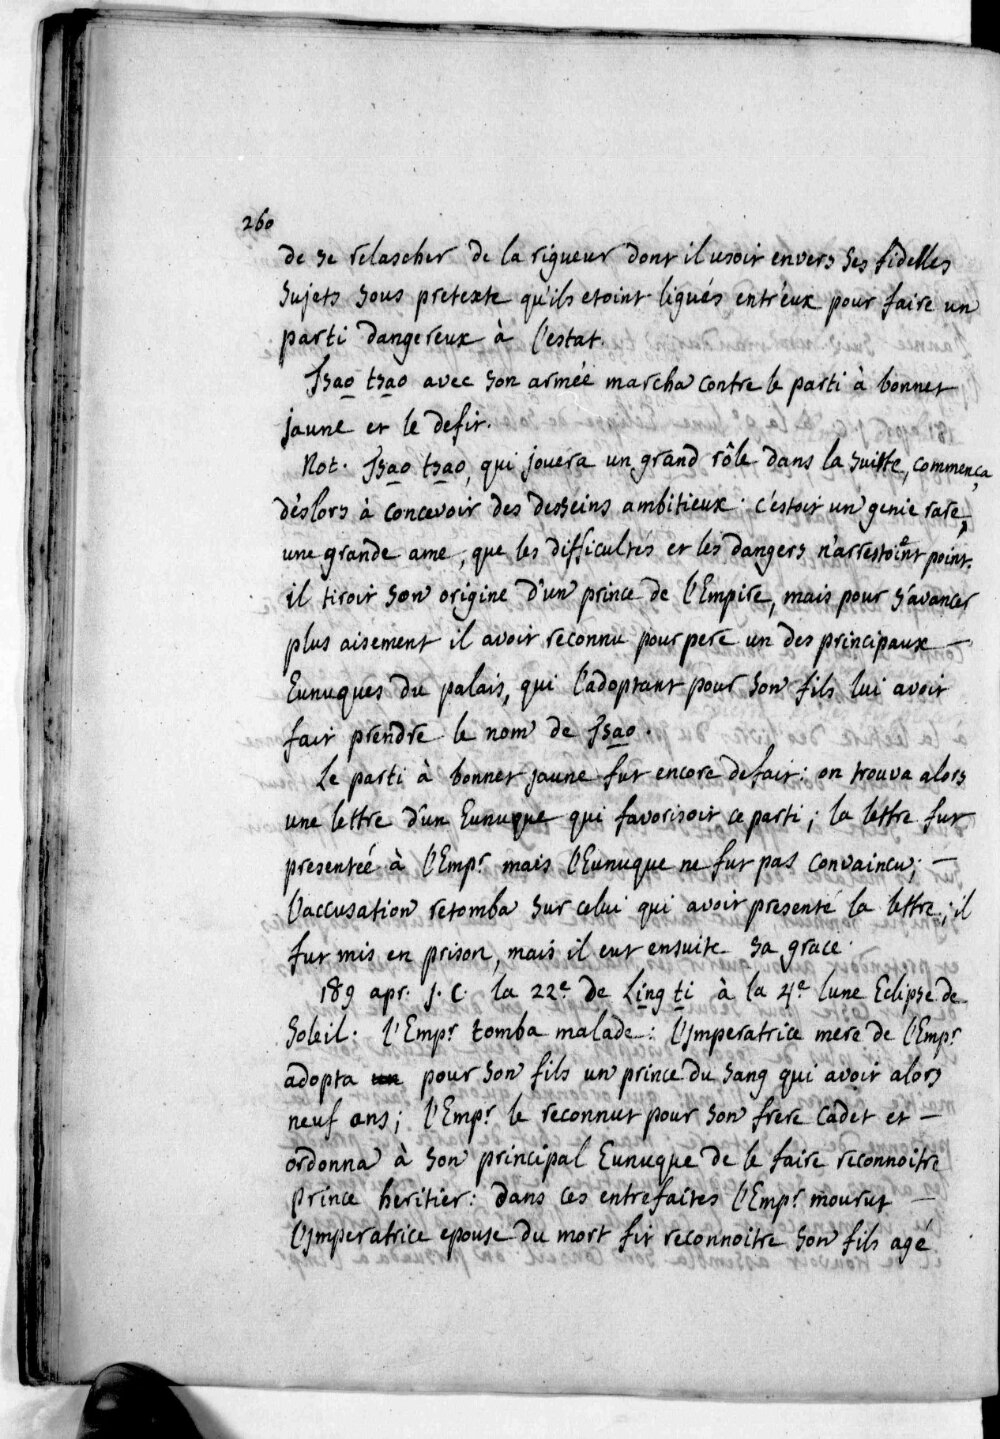 260
de se relascher de la rigueur dont il usoit envers ses fidelles
sujets sous pretexte qu'ils etoint ligués entr'eux pour faire un
parti dangereux à l'estat.
Tsao tsao avec son armée marcha contre le parti à bonnet
jaune et le defit.
Not. Tsao tsao, qui jouera un grand rôle dans la suitte, commença
dèslors à concevoir des desseins ambitieux: c'estoit un genie rare,
une grande ame, que les difficultés et les dangers n'arrestoient point.
il tiroit son origine d'un prince de l'Empire, mais pour s'avancer
plus aisement il avoit reconnu pour pere un des principaux —
Eunuques du palais, qui l'adoptant pour son fils lui avoit
fait prendre le nom de Tsao.
Le parti à bonnet jaune fut encore defait: on trouva alors
une lettre d'un Eunuque qui favorisoit ce parti; la lettre fut
presenteé à l'Empr mais l'Eunuque ne fut pas convaincu; —
l'accusation retomba sur celui qui avoit presenté la lettre; il
fut mis en prison, mais il eut ensuite sa grace.
189 apr. J. C. la 22e de Ling ti à la 4e lune Eclipse de
Soleil. l'Empr tomba malade: l'Imperatrice mere de l'Empr
adopta un pour son fils un prince du sang qui avoit alors
neuf ans; l'Empr le reconnut pour son frere cadet et —
ordonna à son principal Eunuque de le faire reconnoitre
prince heritier: dans ces entrefaites l'Empr mourut —
l'Imperatrice epouse du mort fit reconnoitre son fils agé